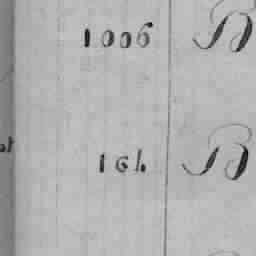 1006 B
161. B